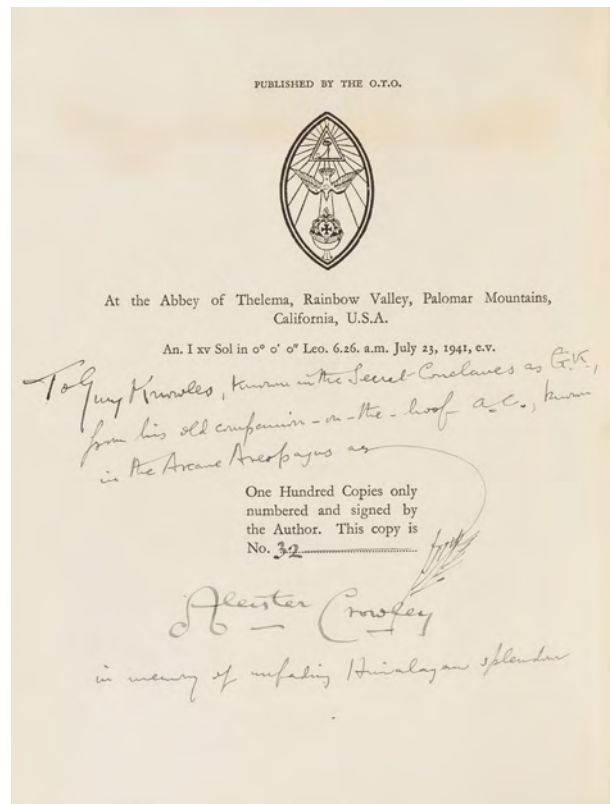 PUBLISHED BY THE O.T.O.
At the Abbey of Thelema, Rainbow Valley, Palomar Mountains,
California, U.S.A.
An. I xv Sol in 0° 0' 0" Leo. 6.26. a.m. July 23, 1941, e.v.
To Guy Knowles, known in the Secret Conclaves as G.K.,
from his old companion-on-the-hoof A.C., known
in the Arcane Areopagus as
One Hundred Copies only
numbered and signed by
the Author. This copy is
No. 32
Aleister Crowley
in memory of unfading Himalayan splendour